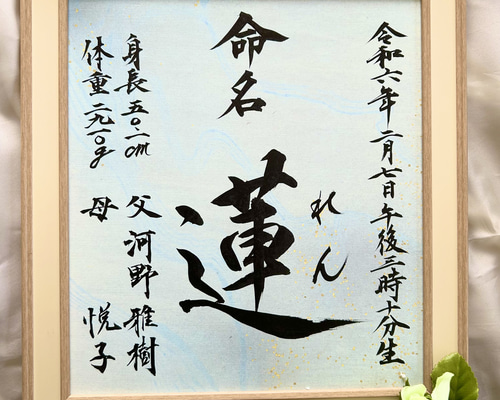 令和六年二月七日午後三時十分生
命名
蓮
れん
身長五〇.一cm
体重二九一〇g
父 河野 雅樹
母 悦子